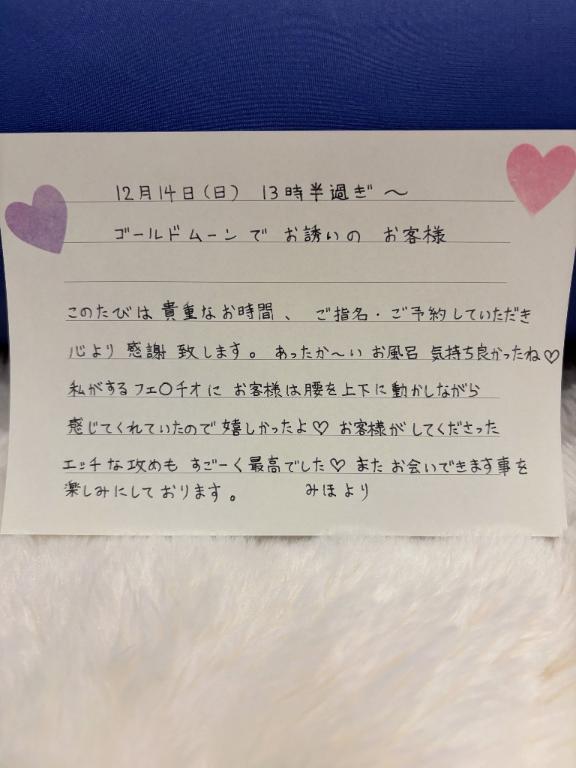 12月14日(日) 13時半過ぎ〜
ゴールドムーンで お誘いの お客様
このたびは貴重なお時間、ご指名・ご予約していただき
心より感謝致します。あったか〜いお風呂気持ち良かったね♡
私がするフェ〇チオに お客様は腰を上下に動かしながら
感じてくれていたので嬉しかったよ♡ お客様がしてくださった
エッチな攻めも すごーく最高でした♡ またお会いできます事を
楽しみにしております。 みほより